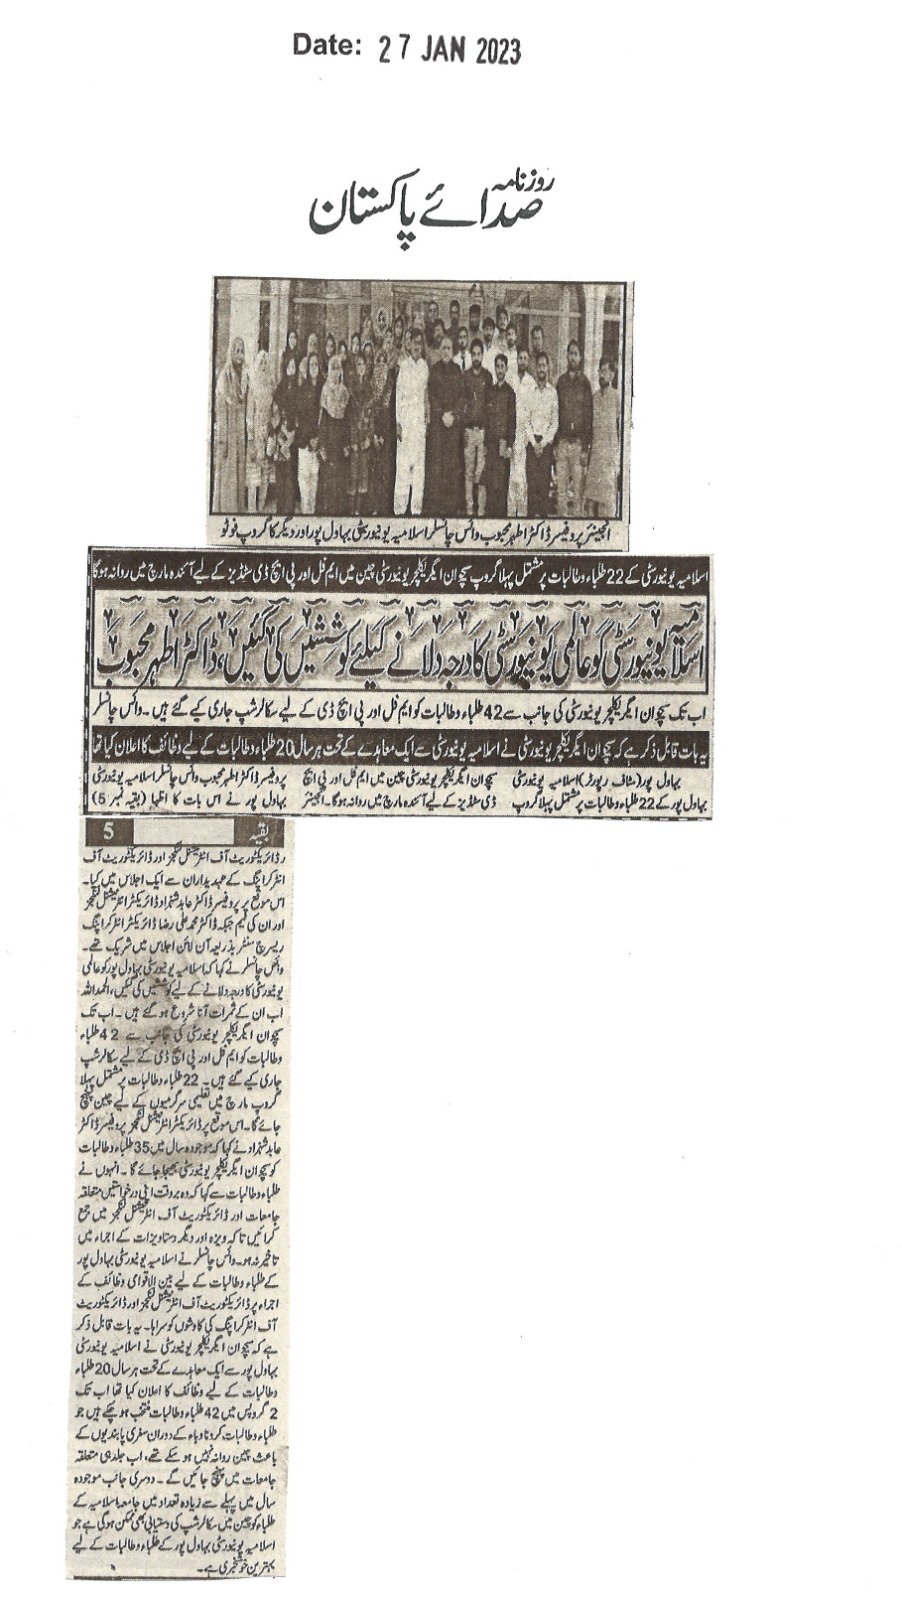 Date: 27 JAN 2023
روزنامہ
صدائے پاکستان
انجینئر پروفیسر ڈاکٹر اطہر محبوب وائس چانسلر اسلامیہ یونیورسٹی بہاول پور اور دیگر کا گروپ فوٹو
اسلامیہ یونیورسٹی کے 22 طلباء وطالبات پر مشتمل پہلا گروپ سچوان ایگریکلچر یونیورسٹی چین میں ایم فل اور پی ایچ ڈی سٹڈیز کے لیے آئندہ مارچ میں روانہ ہوگا
اسلامیہ یونیورسٹی کو عالمی یونیورسٹی کا درجہ دلانے کیلئے کوششیں کی گئیں، ڈاکٹر اطہر محبوب
اب تک سچوان ایگریکلچر یونیورسٹی کی جانب سے 42 طلباء وطالبات کو ایم فل اور پی ایچ ڈی کے لیے سکالرشپ جاری کیے گئے ہیں۔ وائس چانسلر
یہ بات قابل ذکر ہے کہ سچوان ایگریکلچر یونیورسٹی نے اسلامیہ یونیورسٹی سے ایک معاہدے کے تحت ہر سال 20 طلباء وطالبات کے لیے وظائف کا اعلان کیا تھا
بہاول پور (سٹاف رپورٹر) اسلامیہ یونیورسٹی
بہاول پور کے 22 طلباء وطالبات پر مشتمل پہلا گروپ
سچوان ایگریکلچر یونیورسٹی چین میں ایم فل اور پی ایچ
ڈی سٹڈیز کے لیے آئندہ مارچ میں روانہ ہوگا۔ انجینئر
پروفیسر ڈاکٹر اطہر محبوب وائس چانسلر اسلامیہ یونیورسٹی
بہاول پور نے اس بات کا اظہا (بقیہ نمبر 5)
بقیہ 5
ر ڈائریکٹوریٹ آف انٹرنیشنل لنکجز اور ڈائریکٹوریٹ آف
انٹر کراپنگ کے عہدیداران سے ایک اجلاس میں کیا۔
اس موقع پر پروفیسر ڈاکٹر عابد شہزاد ڈائریکٹر انٹرنیشنل لنکجز
اور ان کی ٹیم جبکہ ڈاکٹر محمد علی رضا ڈائریکٹر انٹر کراپنگ
ریسرچ سنٹر بذریعہ آن لائن اجلاس میں شریک تھے۔
وائس چانسلر نے کہا کہ اسلامیہ یونیورسٹی بہاول پور کو عالمی
یونیورسٹی کا درجہ دلانے کے لیے کوششیں کی گئیں، الحمدللہ
اب ان کے ثمرات آنا شروع ہو گئے ہیں۔ اب تک
سچوان ایگریکلچر یونیورسٹی کی جانب سے 42 طلباء
وطالبات کو ایم فل اور پی ایچ ڈی کے لیے سکالرشپ
جاری کیے گئے ہیں۔ 22 طلباء وطالبات پر مشتمل پہلا
گروپ مارچ میں تعلیمی سرگرمیوں کے لیے چین پہنچ
جائے گا۔ اس موقع پر ڈائریکٹر انٹرنیشنل لنکجز پروفیسر ڈاکٹر
عابد شہزاد نے کہا کہ موجودہ سال میں 35 طلباء وطالبات
کو سچوان ایگریکلچر یونیورسٹی بھیجا جائے گا۔ انہوں نے
طلباء وطالبات سے کہا کہ وہ بروقت اپنی درخواستیں متعلقہ
جامعات اور ڈائریکٹوریٹ آف انٹرنیشنل لنکجز میں جمع
کرائیں تاکہ ویزہ اور دیگر دستاویزات کے اجراء میں
تاخیر نہ ہو۔ وائس چانسلر نے اسلامیہ یونیورسٹی بہاول پور
کے طلباء وطالبات کے لیے بین الاقوامی وظائف کے
اجراء پر ڈائریکٹوریٹ آف انٹرنیشنل لنکجز اور ڈائریکٹوریٹ
آف انٹر کراپنگ کی کاوشوں کو سراہا۔ یہ بات قابل ذکر
ہے کہ سچوان ایگریکلچر یونیورسٹی نے اسلامیہ یونیورسٹی
بہاول پور سے ایک معاہدے کے تحت ہر سال 20 طلباء
وطالبات کے لیے وظائف کا اعلان کیا تھا اب تک
2 گروپس میں 42 طلباء وطالبات منتخب ہو چکے ہیں جو
طلباء وطالبات کرونا وباء کے دوران سفری پابندیوں کے
باعث چین روانہ نہیں ہو سکے تھے، اب جلد ہی متعلقہ
جامعات میں پہنچ جائیں گے۔ دوسری جانب موجودہ
سال میں پہلے سے زیادہ تعداد میں جامعہ اسلامیہ کے
طلباء کو چین میں سکالرشپ کی دستیابی بھی ممکن ہوگی ہے جو
اسلامیہ یونیورسٹی بہاول پور کے طلباء وطالبات کے لیے
بہترین خوشخبری ہے۔